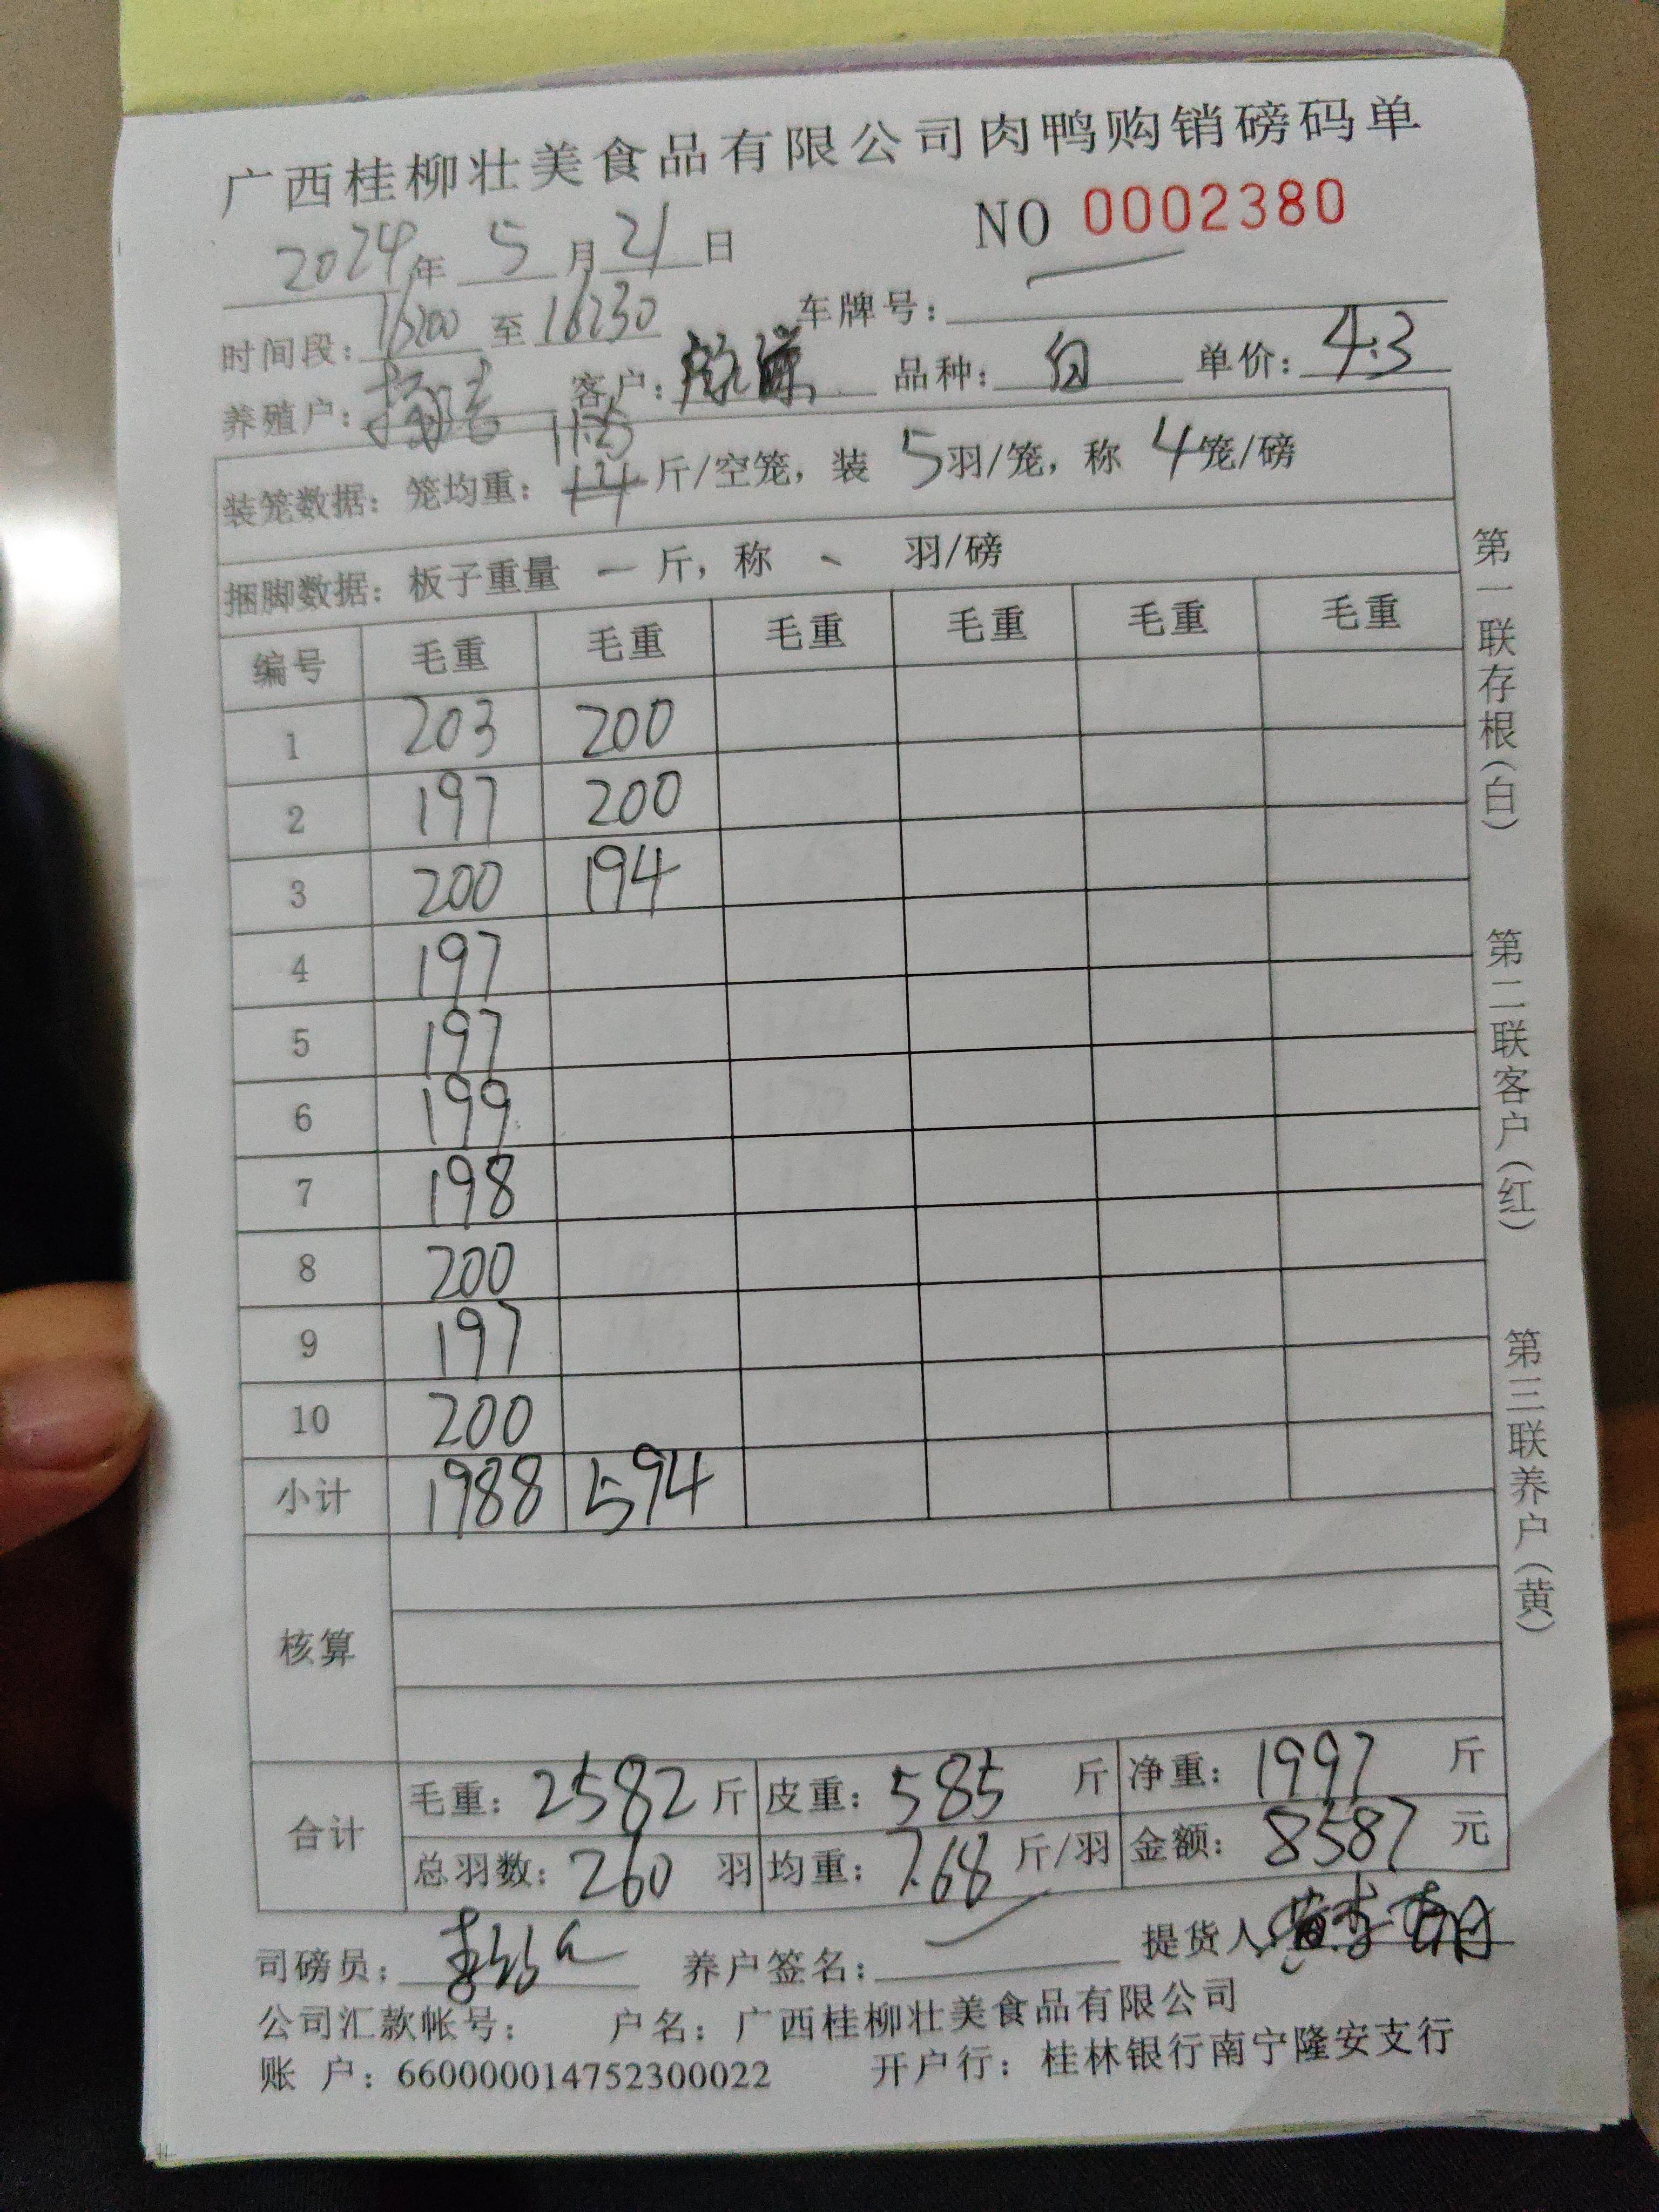 广西桂柳壮美食品有限公司肉鸭购销磅码单
NO 0002380
2024年 5 月 21 日
时间段: 16:00 至 16:30 车牌号:
养殖户: 客户: 品种: 白 单价: 4.3
装笼数据: 笼均重: 11.25 斤/空笼, 装 5 羽/笼, 称 4 笼/磅
捆脚数据: 板子重量 一 斤, 称 、 羽/磅
编号 毛重 毛重 毛重 毛重 毛重 毛重
1 203 200
2 197 200
3 200 194
4 197
5 197
6 199
7 198
8 200
9 197
10 200
小计 1988 594
核算
合计
毛重: 2582 斤 皮重: 585 斤 净重: 1997 斤
总羽数: 260 羽 均重: 7.68 斤/羽 金额: 8587 元
司磅员: 养户签名: 提货人:
公司汇款帐号: 户名: 广西桂柳壮美食品有限公司
账 户: 660000014752300022 开户行: 桂林银行南宁隆安支行
第一联存根(白)
第二联客户(红)
第三联养户(黄)